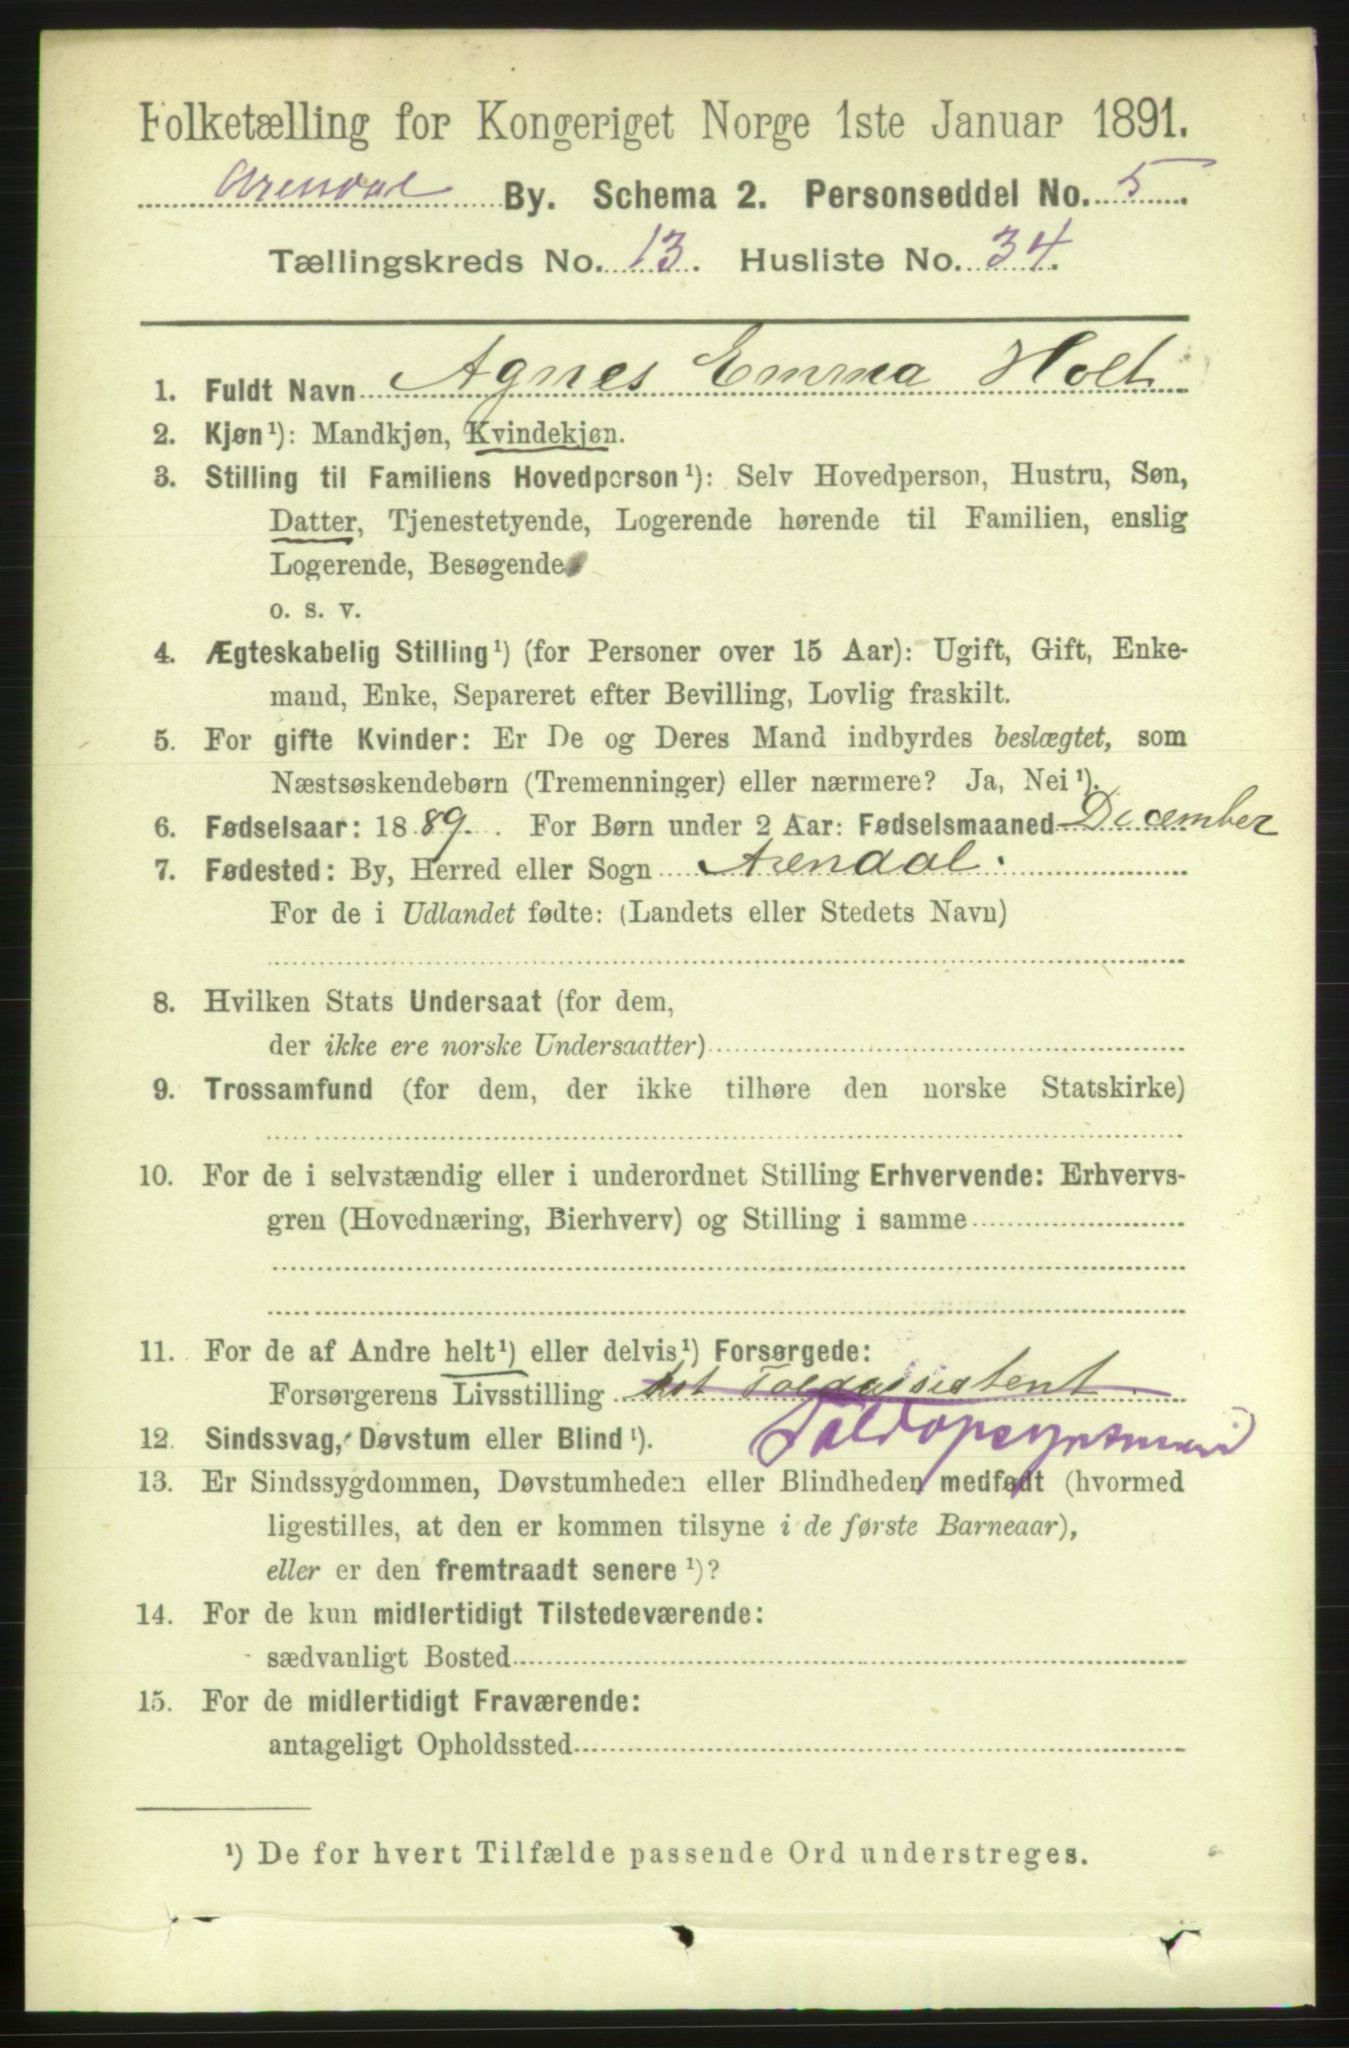 Folketælling for Kongeriget Norge 1ste Januar 1891.
Arendal By. Schema 2. Personseddel No. 5.
Tællingskreds No. 13. Husliste No. 34.
1. Fuldt Navn Agnes Emma Holt
2. Kjøn¹): Mandkjøn, Kvindekjøn.
3. Stilling til Familiens Hovedperson¹): Selv Hovedperson, Hustru, Søn,
Datter, Tjenestetyende, Logerende hørende til Familien, enslig
Logerende, Besøgende
o. s. v.
4. Ægteskabelig Stilling¹) (for Personer over 15 Aar): Ugift, Gift, Enke-
mand, Enke, Separeret efter Bevilling, Lovlig fraskilt.
5. For gifte Kvinder: Er De og Deres Mand indbyrdes beslægtet, som
Næstsøskendebørn (Tremenninger) eller nærmere? Ja, Nei¹).
6. Fødselsaar: 1889. For Børn under 2 Aar: Fødselsmaaned December
7. Fødested: By, Herred eller Sogn Arendal.
For de i Udlandet fødte: (Landets eller Stedets Navn)
8. Hvilken Stats Undersaat (for dem,
der ikke ere norske Undersaatter)
9. Trossamfund (for dem, der ikke tilhøre den norske Statskirke)
10. For de i selvstændig eller i underordnet Stilling Erhvervende: Erhvervs-
gren (Hovednæring, Bierhverv) og Stilling i samme
11. For de af Andre helt¹) eller delvis¹) Forsørgede:
Forsørgerens Livsstilling Toldassistent
Toldopsynsmand
12. Sindssvag, Døvstum eller Blind¹).
13. Er Sindssygdommen, Døvstumheden eller Blindheden medfødt (hvormed
ligestilles, at den er kommen tilsyne i de første Barneaar),
eller er den fremtraadt senere¹)?
14. For de kun midlertidigt Tilstedeværende:
sædvanligt Bosted
15. For de midlertidigt Fraværende:
antageligt Opholdssted
¹) De for hvert Tilfælde passende Ord understreges.